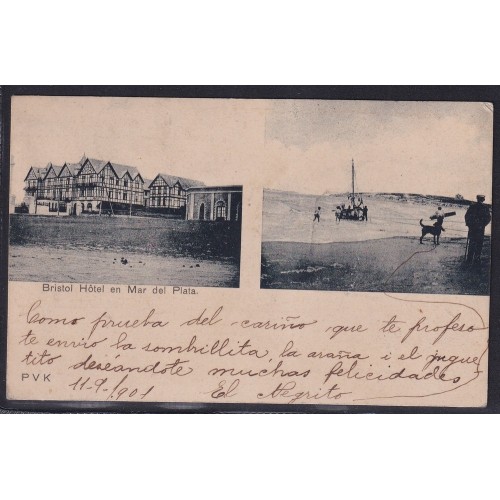 Bristol Hôtel en Mar del Plata.
Como prueba del cariño que te profeso
te envio la sombrillita, la araña i el jugue
tito deseándote muchas felicidades
PVK 11-9-/901 El Negrito